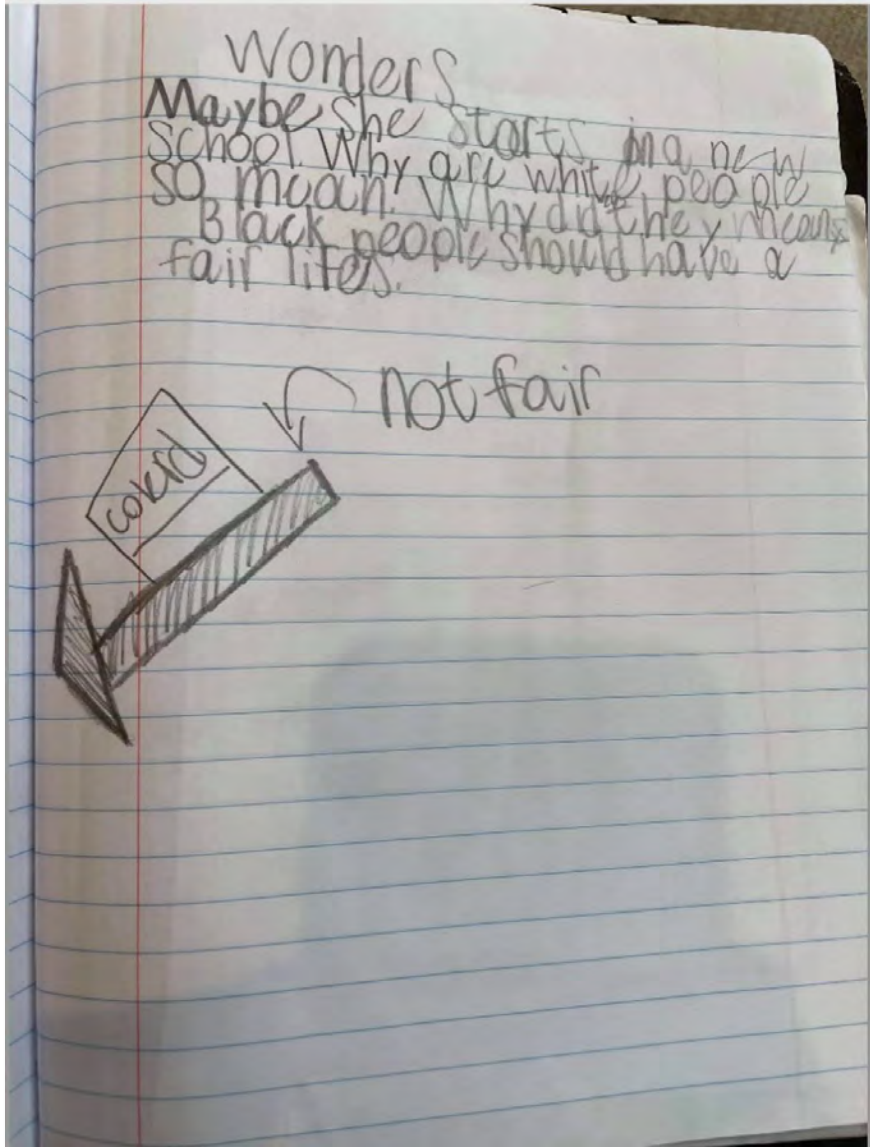 Wonders
Maybe she starts in a new
school. Why are white people
so mean. Why did they mean
Black people should have a
fair lifes.
not fair
colerd